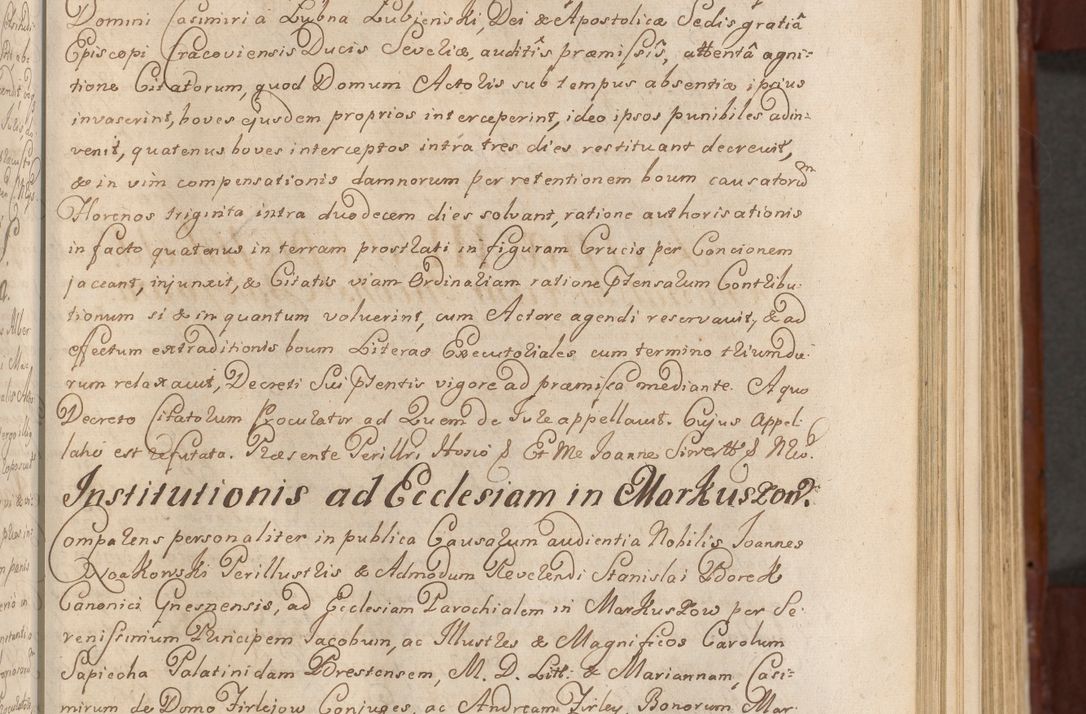 Domini Casimiri à Lubna Lubienski, Dei & Apostolicæ Sedis gratiâ
Episcopi Cracoviensis Ducis Severiæ, auditîs præmissîs, attentâ agni-
tione Citatorum, quod Domum Actoris sub tempus absentiæ ipsius
invaserint, boves ejusdem proprios interceperint, ideo ipsos punibiles adin-
venit, quatenus boves interceptos intra tres dies restituant decrevit,
& in vim compensationis damnorum per retentionem boum causatorum
Florenos triginta intra duodecem dies solvant, ratione authorisationis
in facto quatenus in terram prostrati in figuram Crucis per Concionem
jaceant, injunxit, & Citatis viam Ordinariam ratione ptensarum Contribu-
tionum si & in quantum voluerint, cum Actore agendi reservavit, & ad
effectum extraditionis boum Literas Executoriales cum termino triumdie-
rum relaxavit, Decreti Sui ptentis vigore ad præmissa mediante. A quo
Decreto Citatorum Procurator ad Quem de Jure appellavit. Cujus Appel-
latio est refutata. Præsente Perillri Hosio Et Me Joanne
Institutionis ad Ecclesiam in Markuszow.
Comparens personaliter in publica Causarum audientia Nobilis Joannes
Perillustris & Admodum Reverendi Stanislai
Canonici Gnesnensis, ad Ecclesiam Parochialem in Markuszow per Se-
renissimum Principem Jacobum, ac Illustres & Magnificos Carolum
Sapieha Palatinidam Brestensem, M. D. Litt. & Mariannam, Casi-
mirum de Domo Firlejow Conjuges, ac Andream Firley, Bonorum Mar-